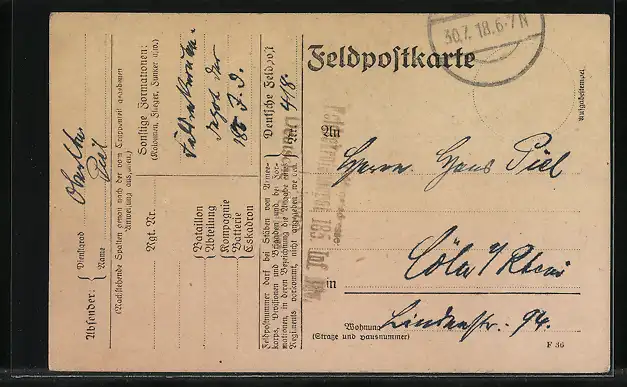 30.7.18.6-7N
Feldpostkarte
Aufgabestempel.
An
Herrn Hans Piel
Cöln a/Rhein
in
Wohnung Lindenstr. 94.
(Straße und Hausnummer)
F 36
Absender:
Dienstgrad
Name Piel
(Nachstehende Spalten genau nach der vom Truppenteil gegebenen
Anweisung ausfüllen.)
Rgt. Nr.
Sonstige Formationen:
(Kolonnen, Flieger, Funker usw.)
185 J. D.
Bataillon
Abteilung
Kompagnie
Batterie
Eskadron
Deutsche Feldpost
Nr. 418.
Feldpostnummer darf bei Stäben vom Armee-
korps, Divisionen und Brigaden und bei For-
mationen, in deren Bezeichnung die Angabe eines
Regiments vorkommt, nicht angegeben werden.
185. Inf. Div.